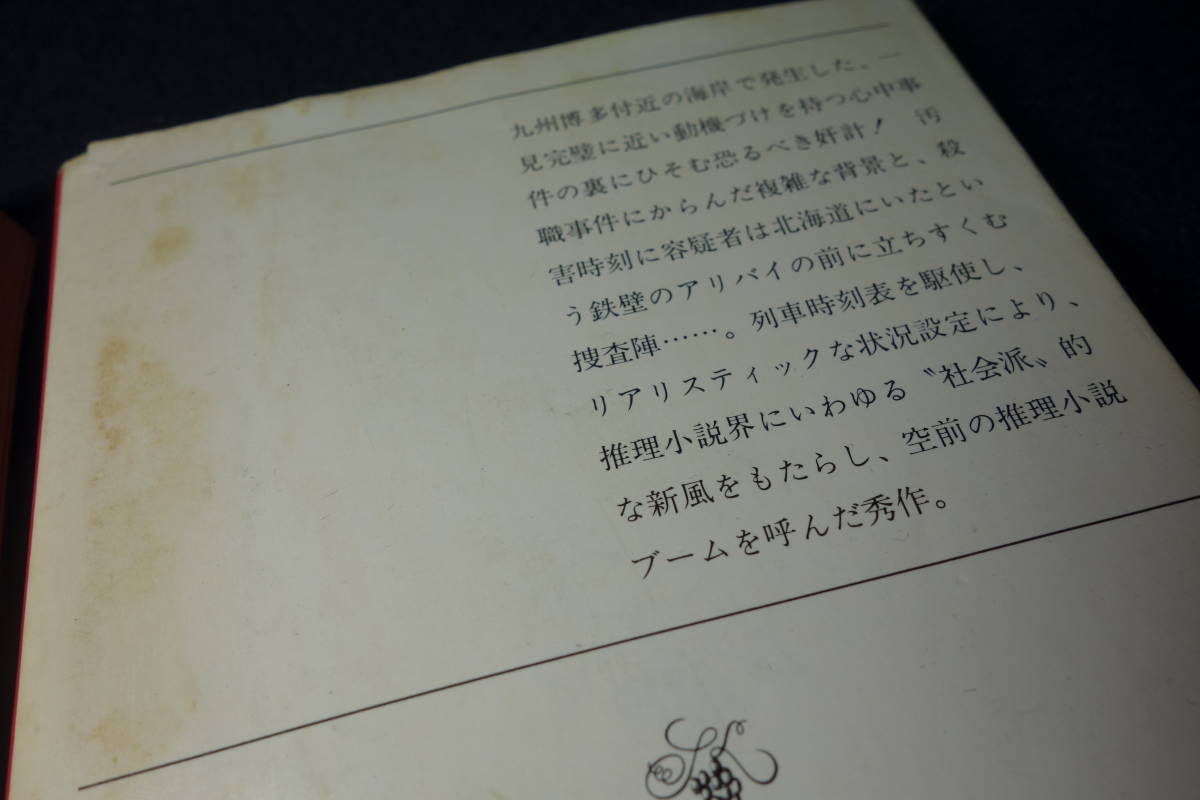 九州博多付近の海岸で発生した、一
見完璧に近い動機づけを持つ心中事
件の裏にひそむ恐るべき奸計! 汚
職事件にからんだ複雑な背景と、殺
害時刻に容疑者は北海道にいたとい
う鉄壁のアリバイの前に立ちすくむ
捜査陣……。列車時刻表を駆使し、
リアリスティックな状況設定により、
推理小説界にいわゆる〝社会派〟的
な新風をもたらし、空前の推理小説
ブームを呼んだ秀作。